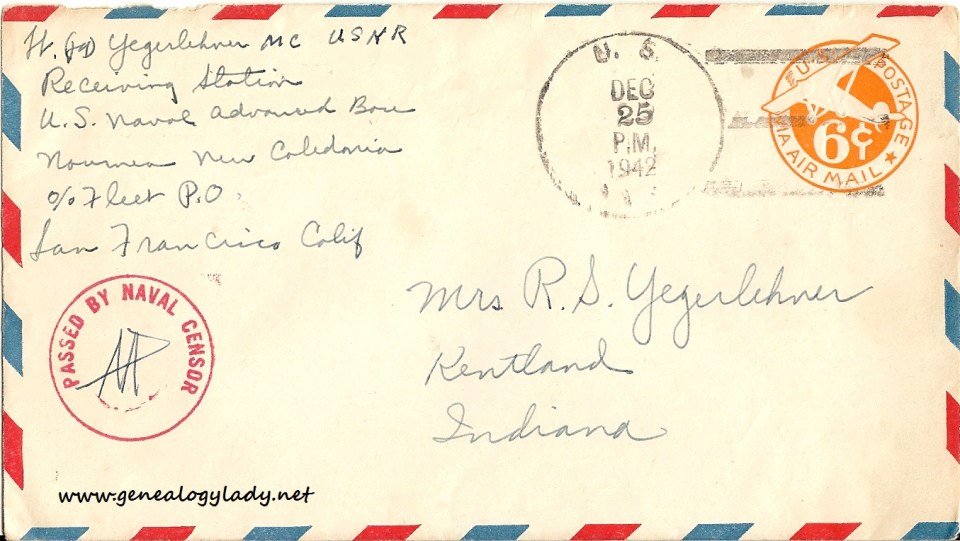 Lt. (jg) Yegerlehner MC USNR
Receiving Station
U.S. Naval Advanced Base
Noumea New Caledonia
c/o Fleet P.O.
San Francisco Calif
U. S.
DEC
25
P.M.
1942
U.S. POSTAGE
6¢
VIA AIR MAIL
Mrs R. S. Yegerlehner
Kentland
Indiana
PASSED BY NAVAL CENSOR
www.genealogylady.net